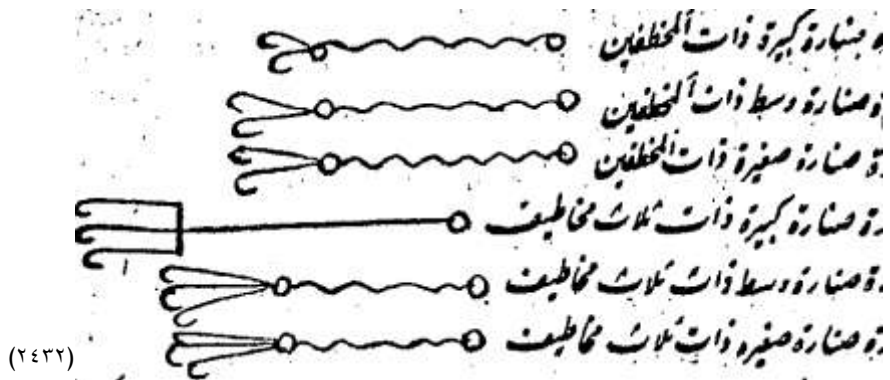 صنارة كبيرة ذات المخطفين
صنارة وسط ذات المخطفين
صنارة صغيرة ذات المخطفين
صنارة كبيرة ذات ثلاث مخاطيف
صنارة وسط ذات ثلاث مخاطيف
صنارة صغيره ذات ثلاث مخاطيف
(٢٤٣٢)